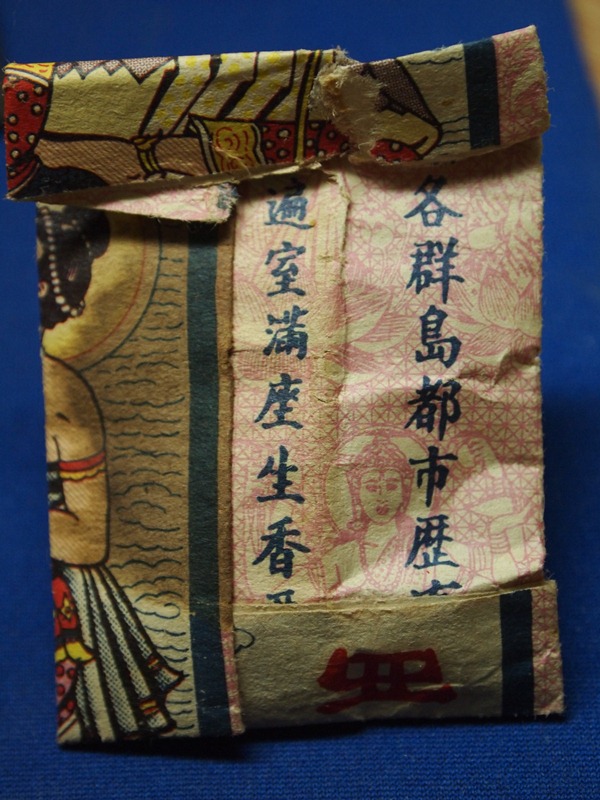 各群島都市歴
遍室滿座生香